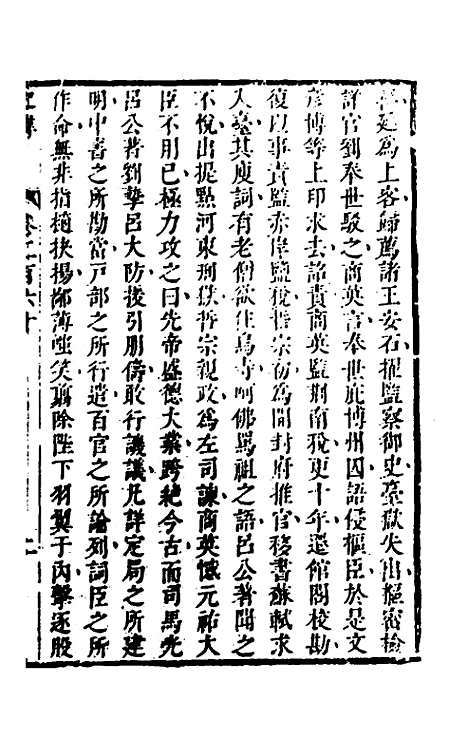 延為上客歸薦諸王安石擢監察御史臺獄失出樞密檢
詳官劉奉世駁之商英言奉世庇博州囚語侵樞臣於是文
彥博等上印求去詔責商英監荊南稅更十年還館閣校勘
復以事責監赤岸鹽稅哲宗初為開封府推官移書蘇軾求
入臺其廋詞有老僧欲住烏寺呵佛罵祖之語呂公著聞之
不悅出提點河東刑獄哲宗親政為左司諫商英憾元祐大
臣不用已極力攻之曰先帝盛德大業跨絶今古而司馬光
呂公著劉摯呂大防援引朋儔敢行譏議凡詳定局之所建
明中書之所勘當戸部之所行遣百官之所論列詞臣之所
作命無非指擿抉揚鄙薄嗤笑翦除陛下羽翼于内擊逐股